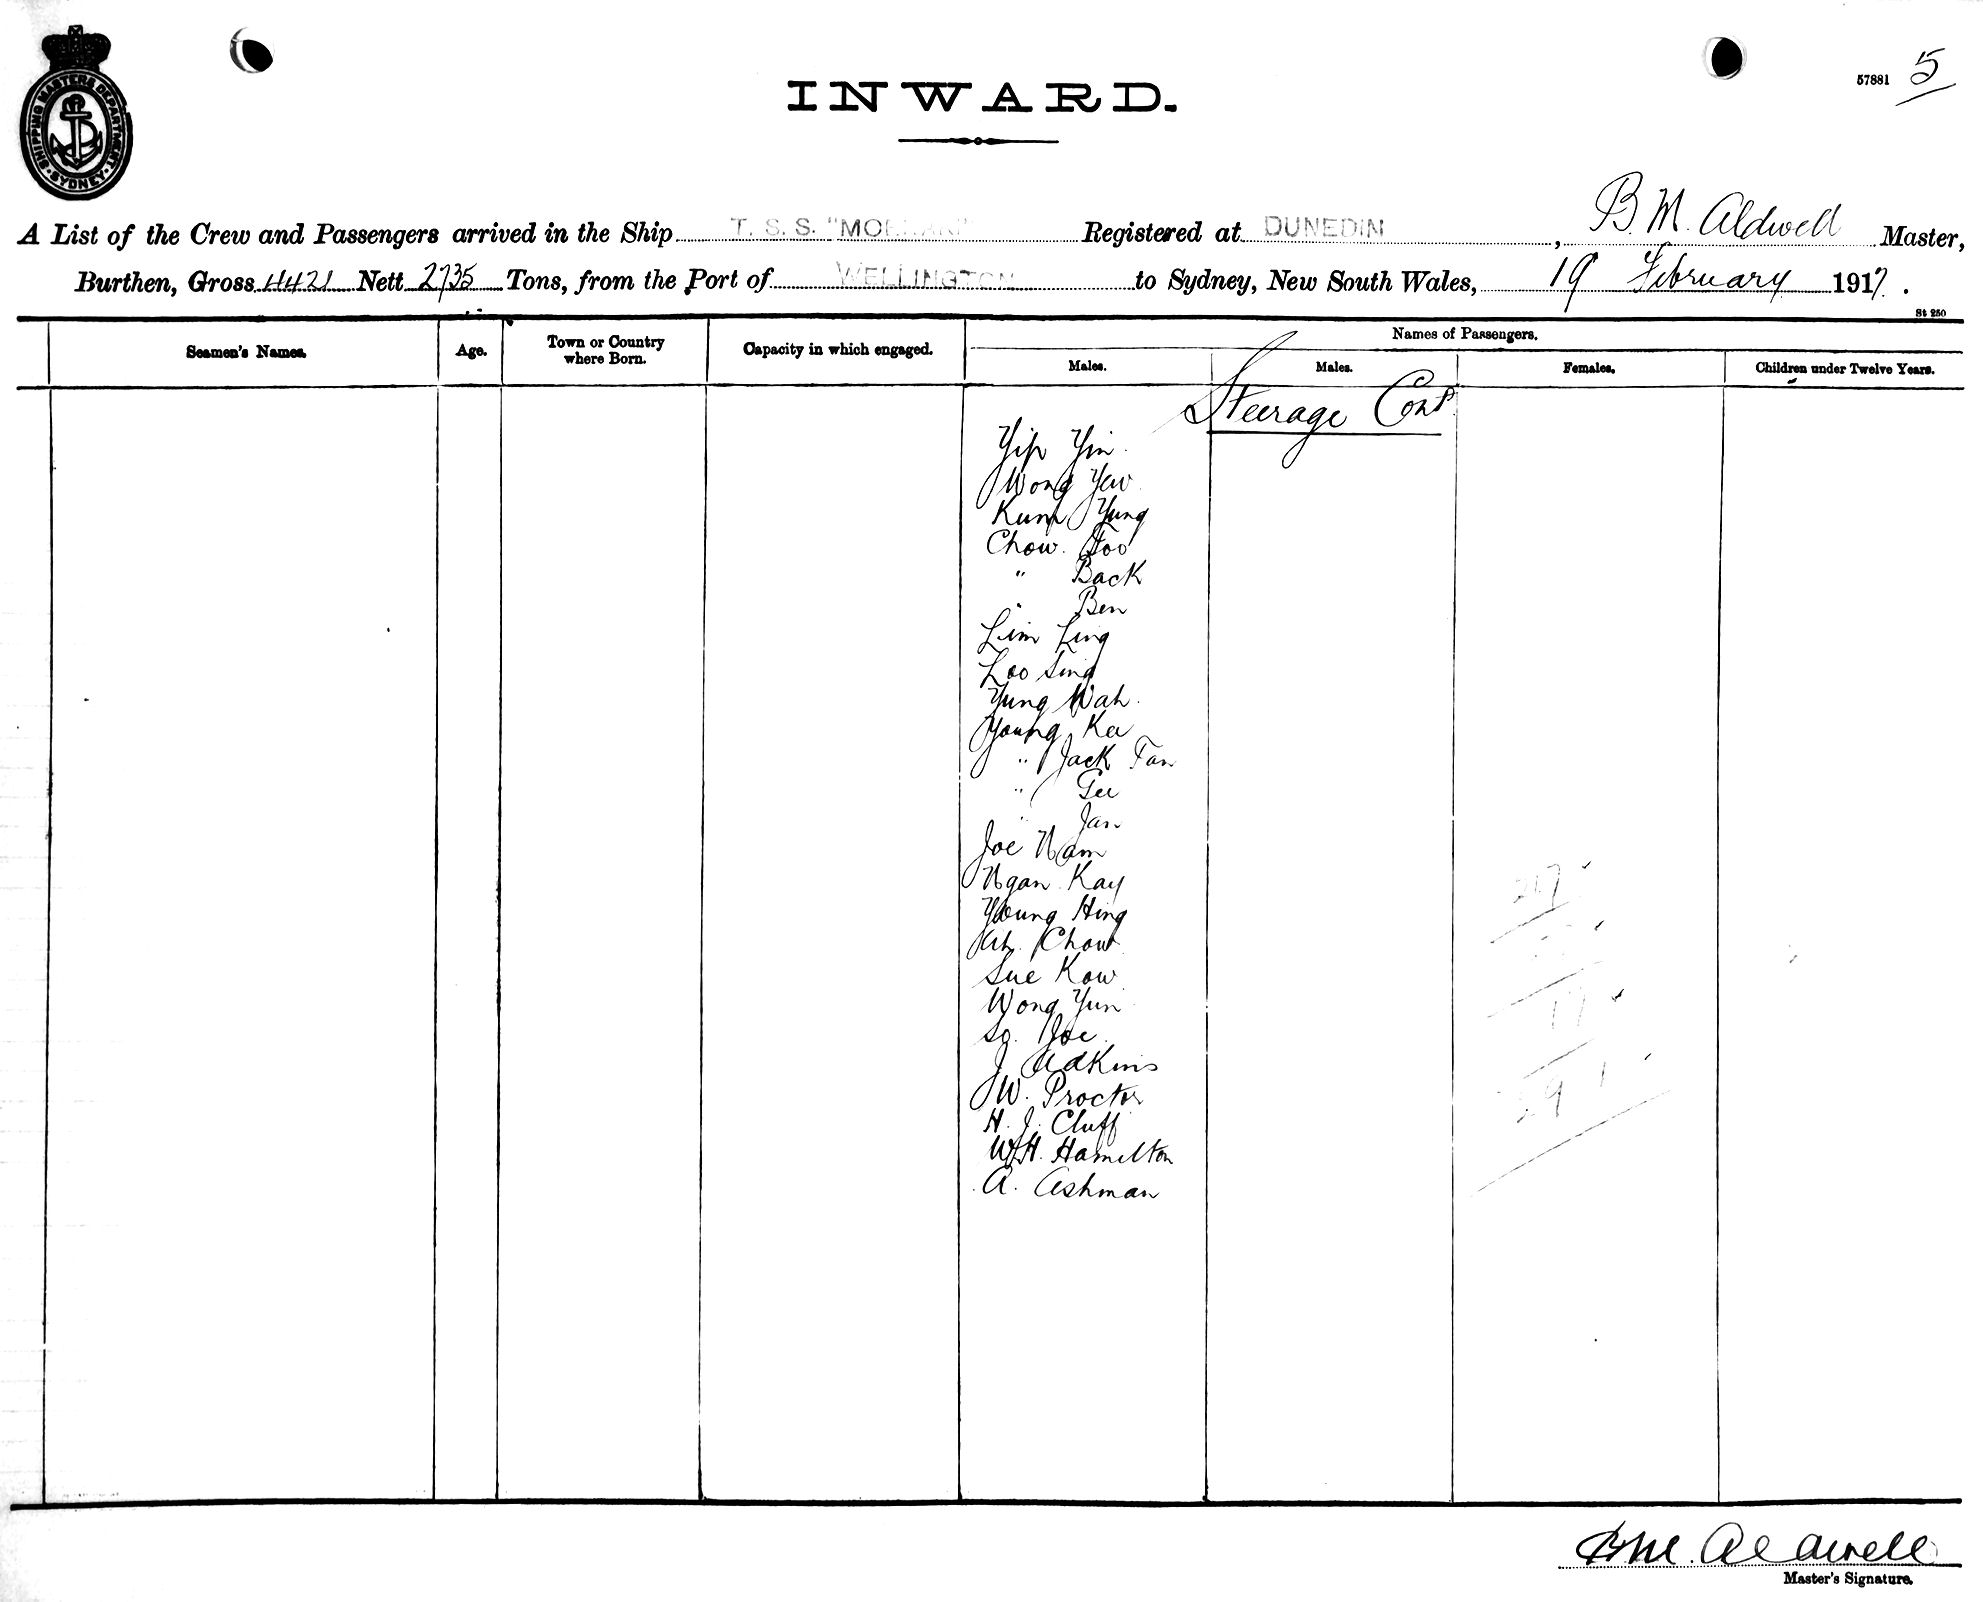 SHIPPING MASTERS DEPARTMENT
SYDNEY
57881 5
INWARD.
A List of the Crew and Passengers arrived in the Ship T. S. S. "MOERAKI" Registered at DUNEDIN, B. M. Aldwell Master,
Burthen, Gross 4421 Nett 2735 Tons, from the Port of WELLINGTON to Sydney, New South Wales, 19 February 1917.
St 250
Seamen's Names. Age. Town or Country where Born. Capacity in which engaged. Names of Passengers.
Males. Males. Females. Children under Twelve Years.
Steerage Cont
Yip Yin
Wong Yew
Kum Yung
Chow Foo
" Back
" Ben
Lim Ling
Loo Sing
Yung Wah
Young Kee
" Jack Fan
" Gee
" Jan
Joe Nam
Ngan Kay
Young Hing
Ah Chow
Sue Kow
Wong Yun
So. Joe
J Adkins
W. Proctor
H. J. Cluff
W. H. Hamilton
A. Ashman
217
17
291
B M. Aldwell
Master's Signature.